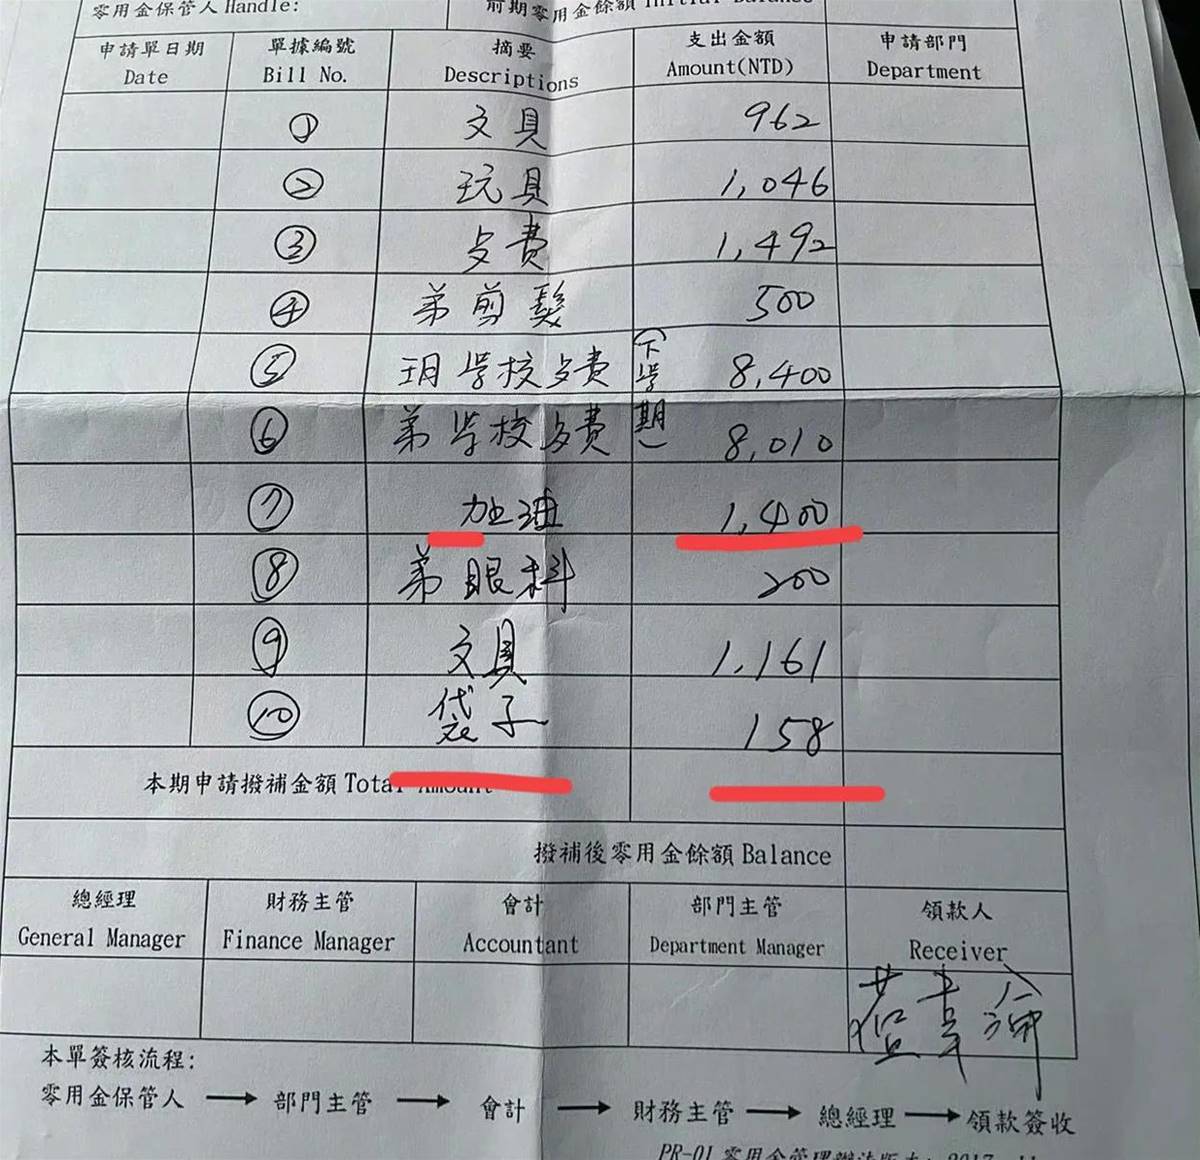 零用金保管人 Handle: 前期零用金餘額 Initial Balance
申請單日期 單據編號 摘要 支出金額 申請部門
Date Bill No. Descriptions Amount(NTD) Department
① 文具 962
② 玩具 1,046
③ 歺費 1,492
④ 弟剪髮 500
⑤ 玥學校歺費 (下學期) 8,400
⑥ 弟学校歺費 8,010
⑦ 加油 1,400
⑧ 弟眼科 200
⑨ 文具 1,161
⑩ 袋子 158
本期申請撥補金額 Total Amount
撥補後零用金餘額 Balance
總經理 財務主管 會計 部門主管 領款人
General Manager Finance Manager Accountant Department Manager Receiver
本單簽核流程:
零用金保管人 → 部門主管 → 會計 → 財務主管 → 總經理 → 領款簽收
PR-01 零用金管理辦法版本: 2017